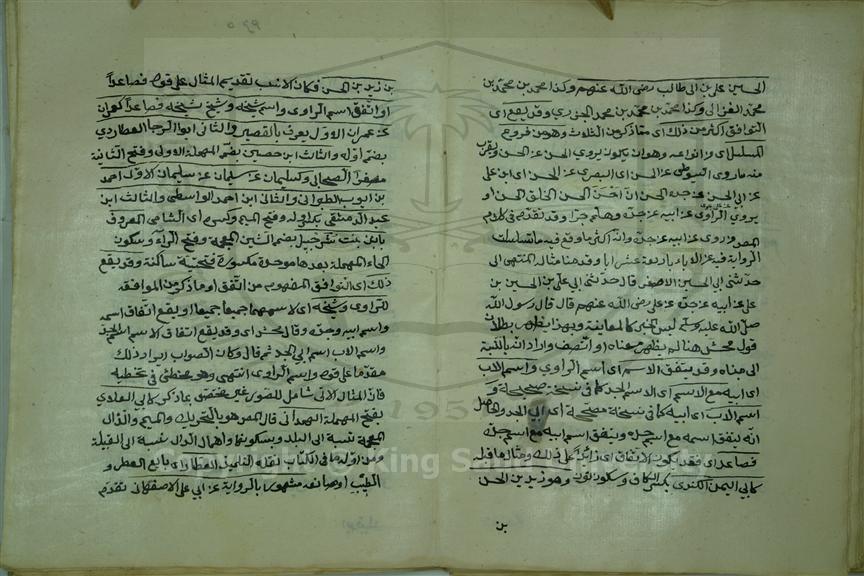 الحسين على بن ابى طالب رضى الله عنهم وكذا محمد بن محمد بن
محمد الغزالى وكذا محمد بن محمد بن محمد الجزرى وقد يقع اى
التوافق اكثر من ذلك اى مما ذكر من الثلاث وهو من فروع
المسلسل اى من انواعه وهو ان يكون يروى الحسن عن الحسن ويقرب
منه ما روى السيوطى عن الحسن اى البصرى عن الحسن اى ابن على
عن ابى الحسن عن جد الحسن ان احسن الحسن الخلق الحسن او
يروى الراوى عن ابيه عن جده وهلم جرا وقد تقدم فى كلام
المص من روى عن ابيه عن جده وانه اكثر ما وقع فيه ما تسلسلت
الرواية فيه عن الاباء باربعة عشر ابا وقد هنا مثاله المنتهى الى
حدثنى ابى الحسين الاصغر قال حدثنى ابى على بن الحسين بن
على عن ابيه عن جده عن على رضى الله عنهم قال قال رسول الله
صلى الله عليه وسلم ليس الخبر كالمعاينة وبهذا يظهر بطلان
قول محش هنا لم يظهر معناه او انتصف واراد الله بالنسبة
الى مبناه وقد يتفق الاسم اى اسم الراوى واسم الاب
اى ابيه مع الاسم اى اسم الجد كما فى نسخة صحيحة و
اسم الاب اى ابيه كما فى نسخة مصححة اى ابى الجد والحاصل
انه يتفق اسمه مع اسم جده ويتفق اسم ابيه مع اسم جده
فصاعدا اى فقد يكون الاتفاق اى زائدا على ذلك ومثالها قيل
كابى اليمن الكندى بكسر الكاف وسكون النون وهو زيد بن الحسن
بن
بن زيد بن الحسن فكان الانسب تقديم المثال على قوله فصاعدا
او اتفق اسم الراوى واسم شيخه وشيخ شيخه فصاعدا كعمران
عن عمران عن عمران الاول يعرف بالقصير والثانى ابو الرجا العطاردى
بضم اوله والثالث ابن حصين بضم المهملة الاولى وفتح الثانية
مصغرا الصحابى وكسليمان عن سليمان عن سليمان الاول احمد
بن ايوب الطبرانى والثانى ابن احمد الواسطى والثالث ابن
عبد الرحمن الدمشقى بكسر اوله وفتح الميم ويكسر اى الشامى المعروف
بابن بنت شرحبيل بضم الشين المعجمة وفتح الراء وسكون
الحاء المهملة بعدها موحدة مكسورة فتحتية ساكنة وقد يقع
ذلك اى التوافق المفهوم من اتفق او ما ذكر من الموافقة
للراوى وشيخه اى لاسمهما جميعا جميعا او يقع اتفاق اسمه
واسم ابيه وجده وقال محش اى وقد يقع اتفاق الاسم اسم الجد
واسم الاب اسم ابى الجد ثم قال وكان الصواب ايراد ذلك
مقدما على قوله واسم الراوى انتهى وهو مخطئ فى تخطئه
فان المثال الاتى شامل للصور غير مختص بما ذكر كابى العلا
بفتح المهملة الهمدانى قال المص هو بالتحريك والميم والذال
المعجمة نسبة الى البلد وبسكونها واهمال الدال نسبة الى القبيلة
ومن اوله ما فى الكتاب نقله التلميذ العطار اى بايع العطر و
الطيب او صانعه مشهور بالرواية عن ابى على الاصفهانى تقدم
Copyright © King Saud University
1957